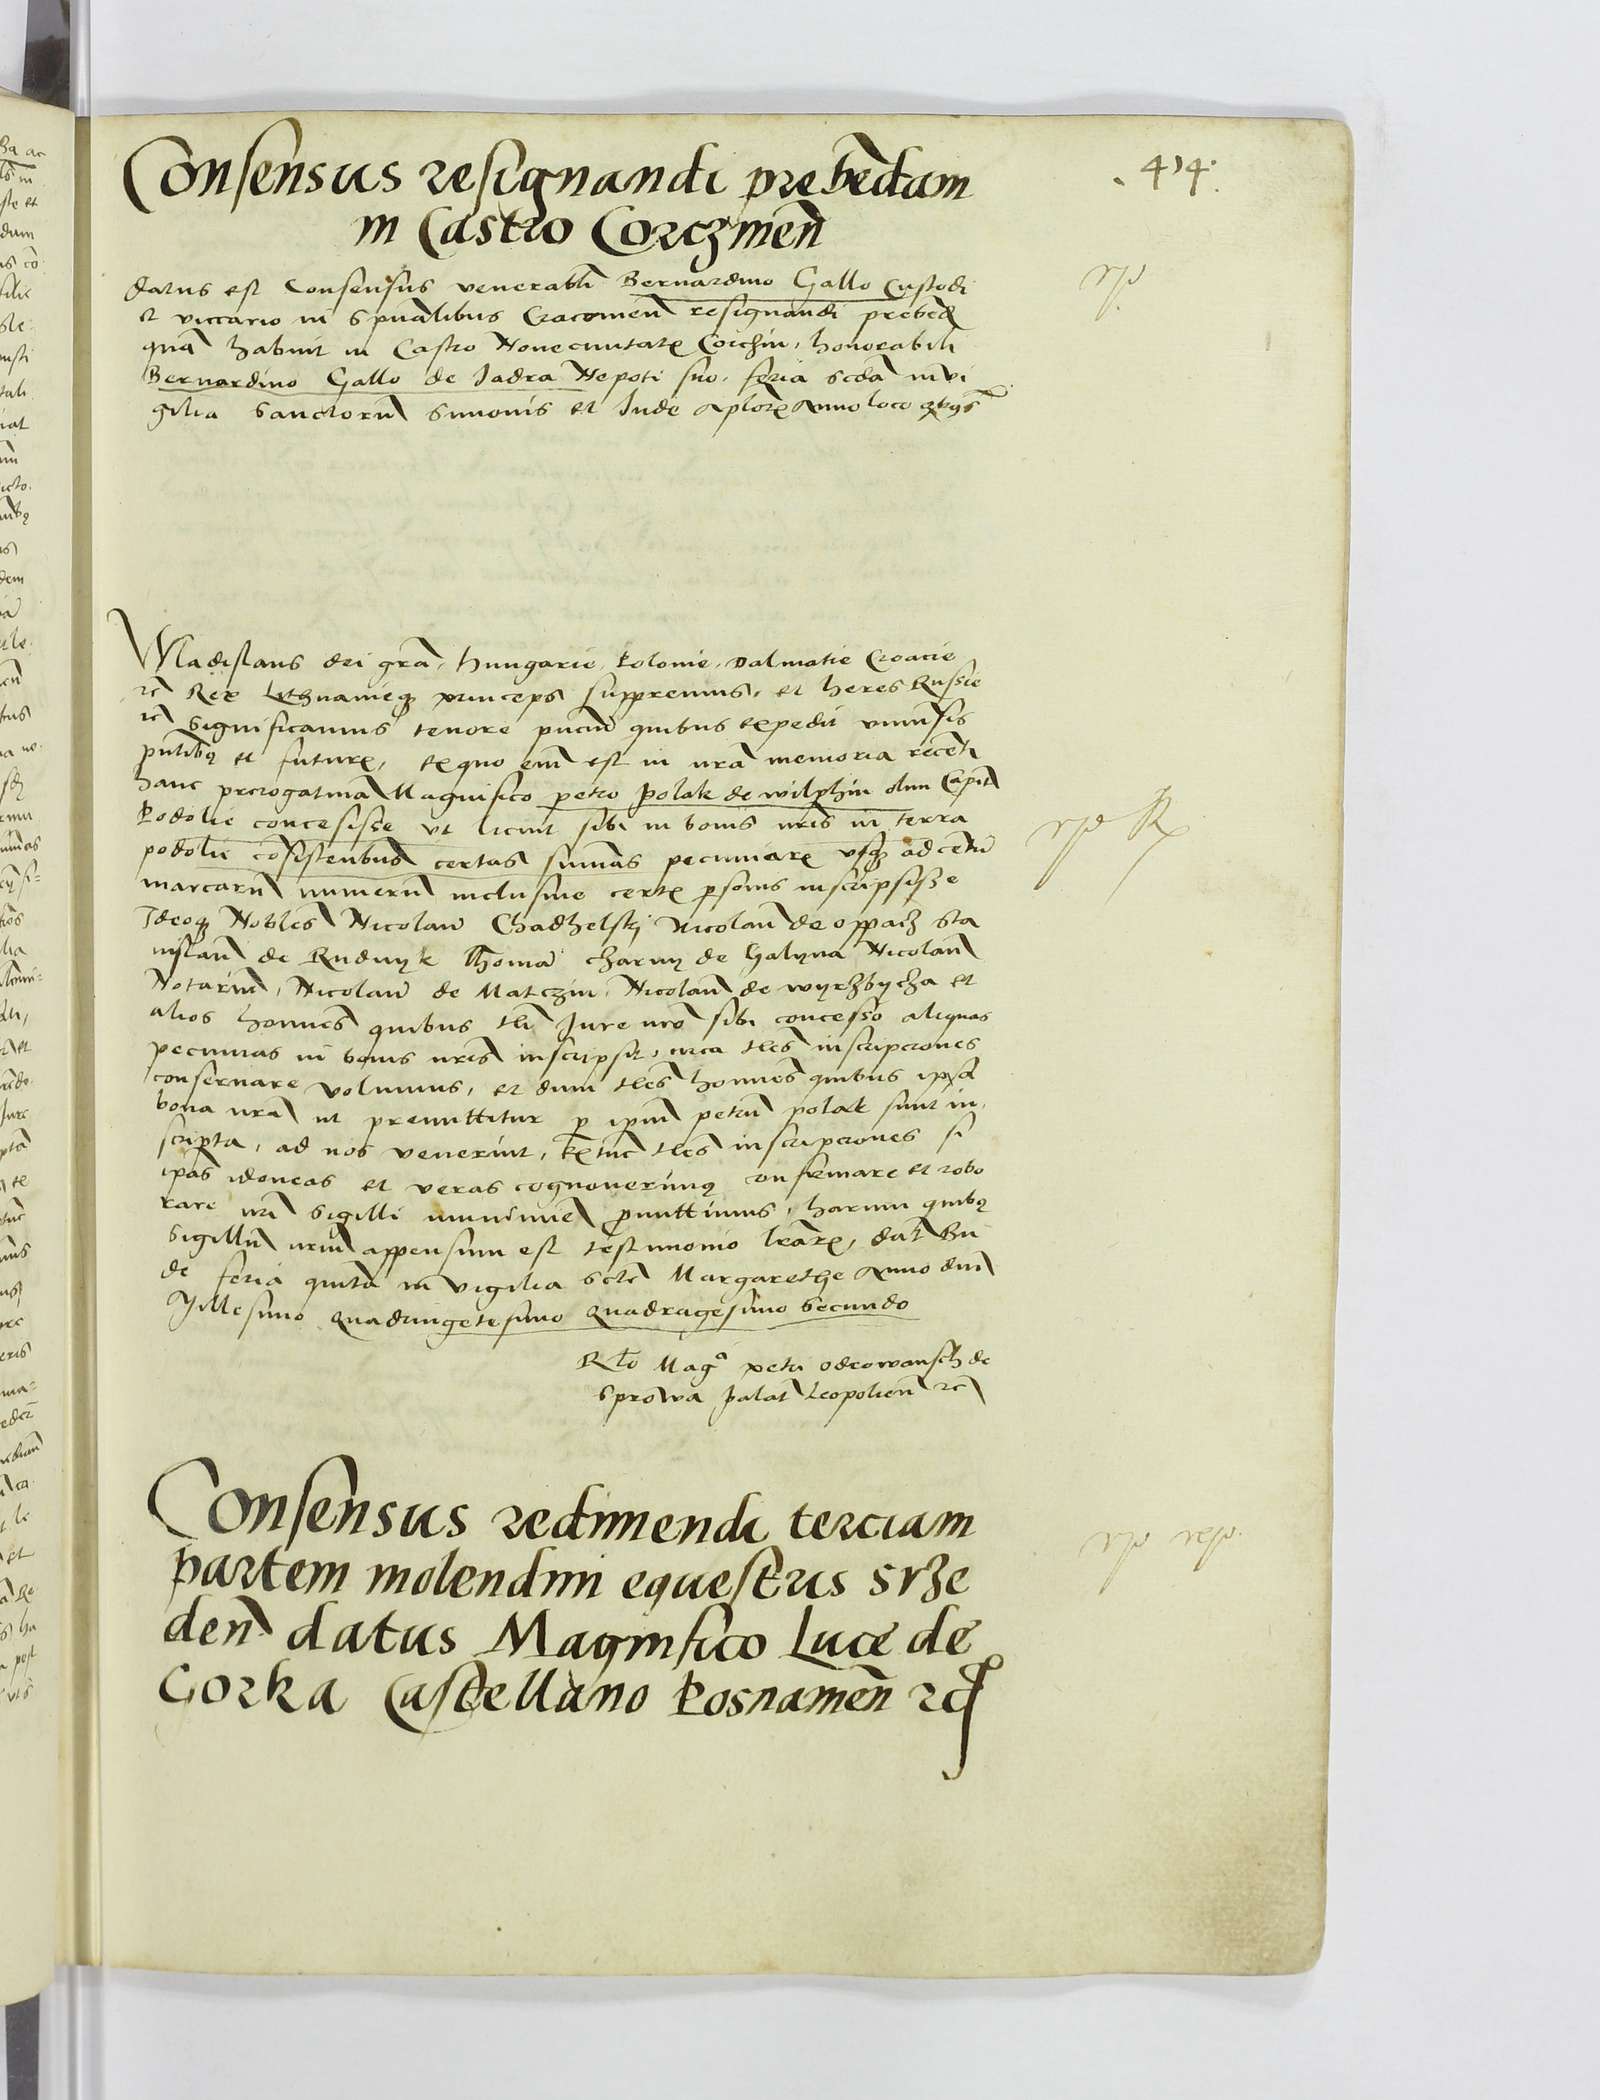 .414.
Consensus resignandi prebedam
in Castro Corczinen
datus est Consensus venerabli Bernardino Gallo Custodi
et viccario in spualibus Cracouien resignandi prebed
qua habuit in Castro Nouecuitate Corchin, honorabili
Bernardino Gallo de Jadra Nepoti suo, feria scda in vi
gilia Sanctoru Simonis et Jude Aplor Anno loco
Wladislaus dei gra, Hungarie, Polonie, Dalmatie Croacie
rc Rex Lithuanieq princeps suppremus, et heres Russie
rc Significamus tenore pncium quibus expedit vniusis
pntibq et futur, exquo em est in nra memoria recenti
hanc prerogatiua Magnifico petro Polak de wilphin olim Capit
Podolie concesisse vt licuit sibi in bonis nris in terra
podolie cosistentibus certas sumas pecuniar vsq ad centu
marcaru numeru inclusiue certis psonis inscripsisse
Ideoq Nobles Nicolau Chadhelskj Nicolau de oppacz Sta
nislau de Rudnyk Thoma charny de Galyna Nicolau
Notariu, Nicolau de Matczin, Nicolau de wyrzbycza et
alios homines quibus tli Jure nro sibi concesso aliquas
pecunias in bonis nris inscripsit, iuxta tles inscripciones
conseruare volumus, et dum tles homines quibus ipsa
bona nra ut premittitur p ipm petru polak sunt in,
scripta, ad nos venerint, extunc tles inscripciones si
ipas idoneas et veras cognouerimq confirmare et robo
rare nri Sigilli munimie pmittimus, harum quibq
Sigillu nrm appensum est testimonio lrar, dat Bu
de feria quita in vigilia scte Margarethe Anno dni
Millesimo quadringetesimo quadragesimo secundo
Rlo Magci petri odrowansch de
Sprowa palat Leopolien rc
Consensus redimendi terciam
partem molendini equestris Srze
den datus Magnifico Luce de
Gorka Castellano Posnanien rc